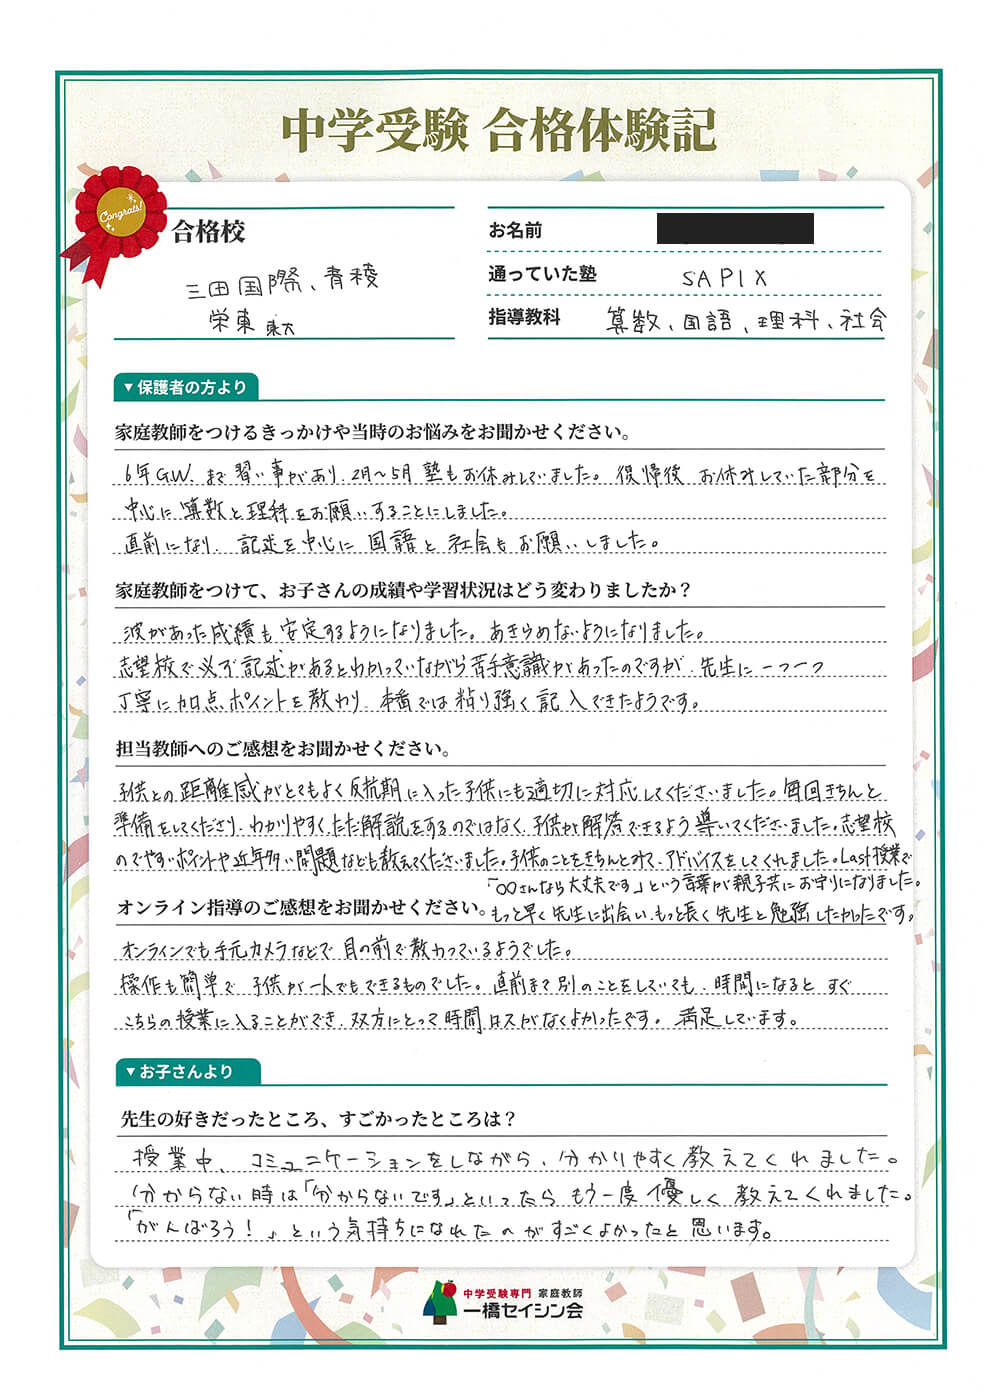 中学受験 合格体験記
Congrats!
合格校
三田国際、青稜
栄東 東大
お名前
通っていた塾 SAPIX
指導教科 算数、国語、理科、社会
▼保護者の方より
家庭教師をつけるきっかけや当時のお悩みをお聞かせください。
6年G.W.まで習い事があり、2月〜5月塾もお休みしていました。復帰後 お休みしていた部分を
中心に算数と理科をお願いすることにしました。
直前になり、記述を中心に国語と社会もお願いしました。
家庭教師をつけて、お子さんの成績や学習状況はどう変わりましたか？
波があった成績も安定するようになりました。あきらめないようになりました。
志望校で必ず記述があるとわかっていながら苦手意識があったのですが、先生に一つ一つ
丁寧に加点ポイントを教わり、本番では粘り強く記入できたようです。
担当教師へのご感想をお聞かせください。
子供との距離感がとてもよく反抗期に入った子供にも適切に対応してくださいました。毎回きちんと
準備をしてくださり、わかりやすく、ただ解説をするのではなく、子供が解答できるよう導いてくださいました。志望校
のでやすいポイントや近年多い問題なども教えてくださいました。子供のことをきちんとみて、アドバイスをしてくれました。Last授業で
「〇〇さんなら大丈夫です」という言葉が親子共にお守りになりました。
もっと早く先生に出会い、もっと長く先生と勉強したかったです。
オンライン指導のご感想をお聞かせください。
オンラインでも手元カメラなどで目の前で教わっているようでした。
操作も簡単で、子供が一人でもできるものでした。直前まで別のことをしていても、時間になるとすぐ
こちらの授業に入ることができ、双方にとって時間ロスがなくよかったです。満足しています。
▼お子さんより
先生の好きだったところ、すごかったところは？
授業中、コミュニケーションをしながら、分かりやすく教えてくれました。
分からない時は「分からないです」といったらもう一度優しく教えてくれました。
「がんばろう！」という気持ちになれたのがすごくよかったと思います。
中学受験専門 家庭教師
一橋セイシン会